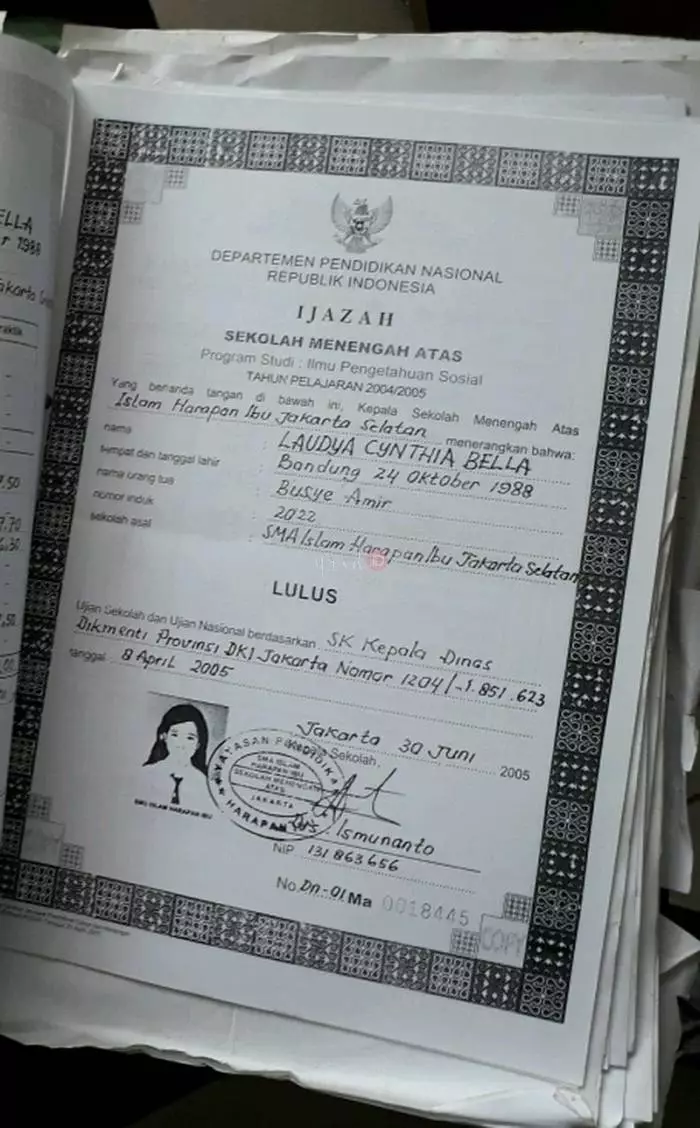 ELLA
r 1988
akarta
7.50
7.70
DEPARTEMEN PENDIDIKAN NASIONAL
REPUBLIK INDONESIA
IJAZAH
SEKOLAH MENENGAH ATAS
Program Studi : Ilmu Pengetahuan Sosial
TAHUN PELAJARAN 2004/2005
Yang bertanda tangan di bawah ini, Kepala Sekolah Menengah Atas
Islam Harapan Ibu Jakarta Selatan menerangkan bahwa:
nama : LAUDYA CYNTHIA BELLA
tempat dan tanggal lahir : Bandung 24 Oktober 1988
nama orang tua : Busye Amir
nomor induk : 2022
sekolah asal : SMA Islam Harapan Ibu Jakarta Selatan
LULUS
Ujian Sekolah dan Ujian Nasional berdasarkan SK Kepala Dinas
Dikmenti Provinsi DKI Jakarta Nomor 1204/-1.851.623
tanggal 8 April 2005
Jakarta 30 Juni 2005
Sekolah,
YAYASAN PENDIDIKAN
SMA ISLAM
HARAPAN IBU
SEKOLAH MENENGAH
ATAS
JAKARTA
HARAPAN
SMU ISLAM HARAPAN IBU
Drs. Ismunanto
NIP. 131863656
No. DN-01 Ma 0018445
COPY